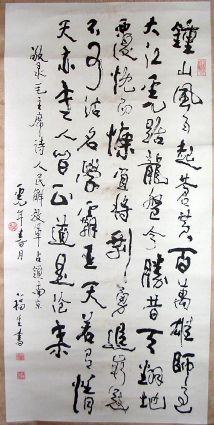 鍾山風雨起蒼黃百萬雄師過
大江虎踞龍盤今勝昔天翻地
覆慨而慷宜將剩勇追窮寇
不可沽名學霸王天若有情
天亦老人间正道是滄桑
敬录毛主席诗 人民解放军占領南京
年春月 書